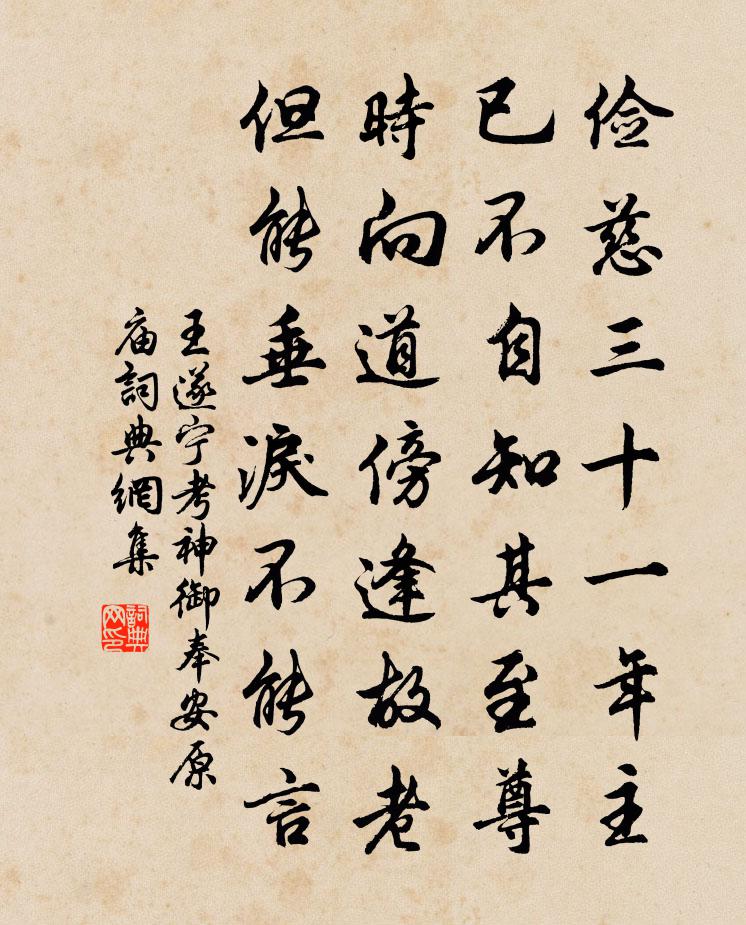 俭慈三十一年主
已不自知其至尊
時向道傍逢故老
但能垂淚不能言
王遂宁考神御奉安原
庙詞典網集
詞典
网印